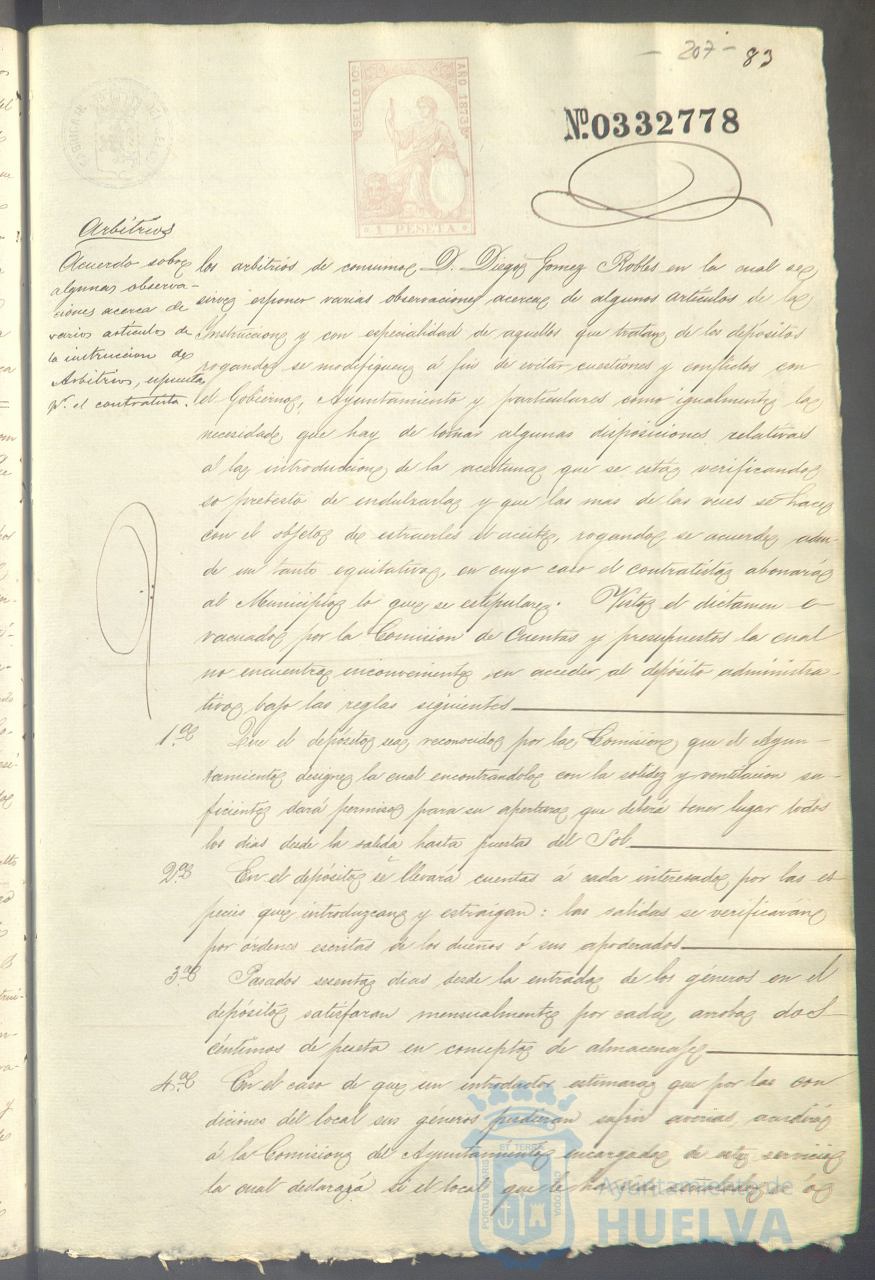 - 207 -
83
SELLO 10º
AÑO 1873
1 PESETA
Nº 0332778
Arbitrios
Acuerdo sobre
algunas observa-
ciones acerca de
varios artículos de
la instruccion de
Arbitrios, espuesta
pr. el contratista.
los arbitrios de consumos D. Diego Gomez Robles en la cual se
sirve esponer varias observaciones acerca de algunos artículos de la
Instruccion y con especialidad de aquellos que tratan de los depósitos
rogando se modifiquen á fin de evitar cuestiones y conflictos con
el Gobierno, Ayuntamiento y particulares como igualmente la
necesidad que hay de tomar algunas disposiciones relativas
á la introduccion de la aceituna que se está verificando
so pretesto de endulzarla y que las mas de las veces se hace
con el objeto de estraerles el aceite, rogando se acuerde aden-
de un tanto equitativo, en cuyo caso el contratista abonará
al Municipio lo que se estipulare. Visto el dictamen e-
vacuado por la Comision de Cuentas y presupuestos la cual
no encuentra inconveniente en acceder al depósito administra-
tivo bajo las reglas siguientes
1.ª Que el depósito sea reconocido por la Comision que el Ayun-
tamiento designe la cual encontrándola con la solidez y ventilacion su-
ficiente dará permiso para su apertura que deberá tener lugar todos
los dias desde la salida hasta puesta del Sol
2.ª En el depósito se llevará cuentas á cada interesado por las es-
pecies que introduzcan y estraigan: las salidas se verificarán
por órdenes escritas de los dueños ó sus apoderados
3.ª Pasados sesenta dias desde la entrada de los géneros en el
depósito satisfaran mensualmente por cada arroba dos
céntimos de peseta en concepto de almacenaje
4.ª En el caso de que un introductor estimara que por las con
diciones del local sus géneros pudieran sufrir averias, acudirá
á la Comision del Ayuntamiento encargado de este servicio
la cual declarará si el local que le ha sido señalado es ó
Ayuntamiento de
HUELVA